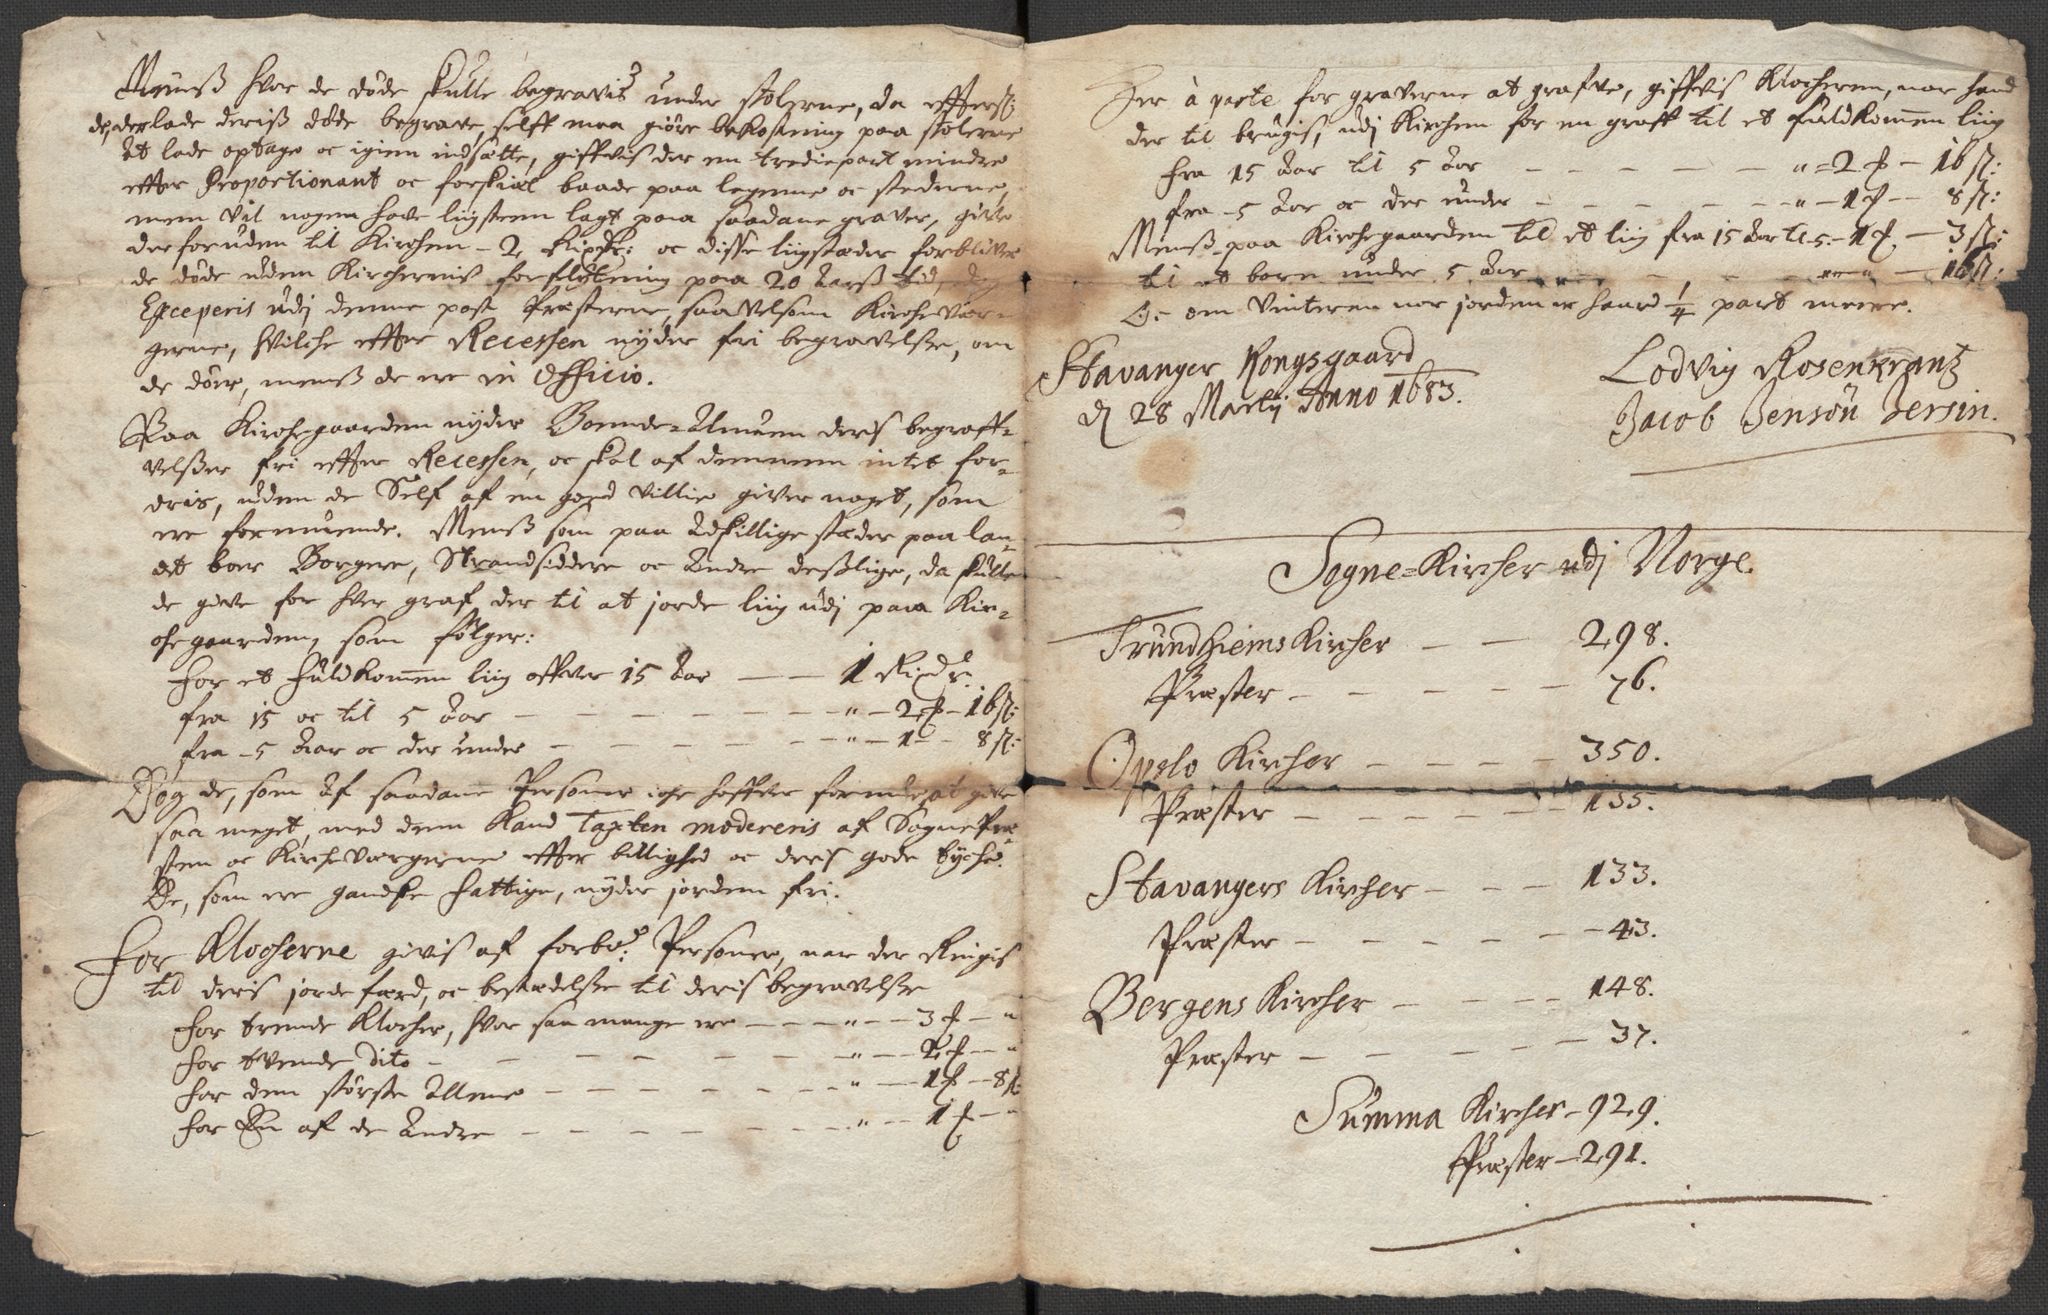 Menß hvor de døde skulle begravis under stolerne, da effters:
de, der lade deriß døde begrave, selff maa giøre bekostning paa stolerne
At lade optage oc igien indsætte, giffvis der en trediepart mindre
effter Proportionant oc forskiæl baade paa legeme oc stederne,
men vil nogen have liigsteen lagt paa saadane graver, give
der foruden til Kirchen - 2 Rixdr: oc disse liigstæder forbliver
de døde uden Kirchernis forflytning paa 20 Aarß tid,
Exceperis udj denne post Præsterne, saavelsom Kircheværgerne, hvilche effter Recessen nyder fri begravelsse, om
de døer, menß de ere in Officio.
Paa Kirchegaarden nyder Bonde-Almuen deris begraff-
velßer fri effter Recessen, oc skal af dennem intet for-
dris, uden de Self af en goed villie giver noget, som
ere formuende. Menß som paa Adskillige stæder paa lan-
det boer Borgere, Strandsiddere oc Andre deßlige, da skulle
de give for hver graf der til at jorde liig udj paa Kir-
chegaarden, som følger:
For et fuldkommen liig offver 15 Aar — — 1 Rixdr.
fra 15 oc til 5 Aar — — — — " — 2 — 16 s:
fra - 5 Aar oc der under — — — — " — 1 — 8 s:
Dog de, som Af saadane Personer iche haffver formue at give
saa meget, med dem kand Taxten modereris af SognePræ-
sten oc Kircheværgerne effter billighed oc deris gode tyche.
De, som ere gandske fattige, nyder jorden fri.
For Klocherne givis af forbte: Personer, naar der Ringis
til deris jordefærd, oc bestædelsse til deris begravelsse
for trende Klocher, hvor saa mange ere — — " — 3 — "
for tvende dito — — — — " — 2 — "
for den største Allene — — — — " — 1 — 8 s:
for En af de Andre — — — — " — 1 — "
Her à parte for graverne at grafve, giffvis Klocheren, naar hand
der til brugis, udj Kirchen for en graff til et fuldkommen liig
fra 15 Aar til 5 Aar — — — — " = 2 — 16 s:
fra - 5 Aar oc der under — — — — " — 1 — 8 s:
Menß paa Kirchegaarden til et liig fra 15 Aar til 5 - 1 — 3 s:
til et barn under 5 Aar — — — — " — 16 s:
Oc om Vinteren naar jorden er haard 1/4 part meere.
Stavanger Kongsgaard
d 28 Martij Anno 1683.
Lodvig Rosenkrantz
Jacob Jensøn Jersin.
Sogne=Kircher udj Norge.
Trundhiems Kircher — — 298.
Præster — — — — 76.
Opslo Kircher — — — — 350.
Præster — — — — 135.
Stavangers Kircher — — — 133.
Præster — — — — 43.
Bergens Kircher — — — — 148.
Præster — — — — 37.
Summa Kircher - 929.
Præster — 291.